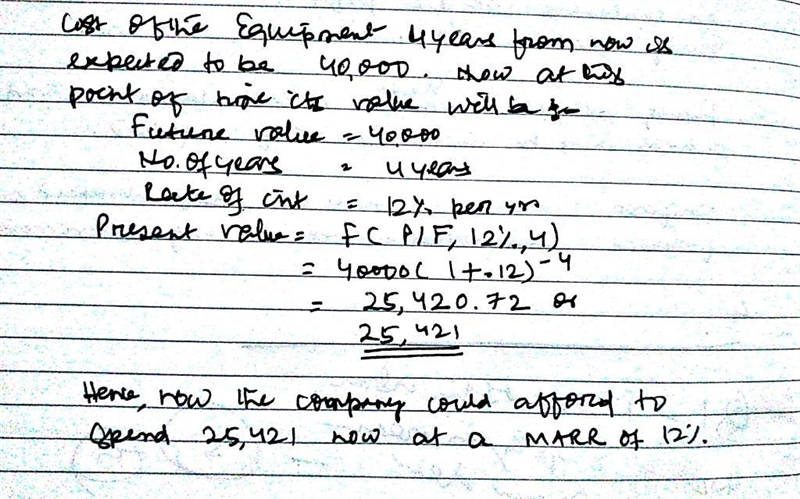 Cost of the Equipment 4 years from now is
expected to be 40,000. Now at this
point of time its value will be
Future value = 40,000
No. of years = 4 years
Rate of int = 12% per yr
Present value = F( P/F, 12%, 4)
= 40000( 1+.12)⁻⁴
= 25,420.72 or
25,421
Hence, now the company could afford to
spend 25,421 now at a MARR of 12%.